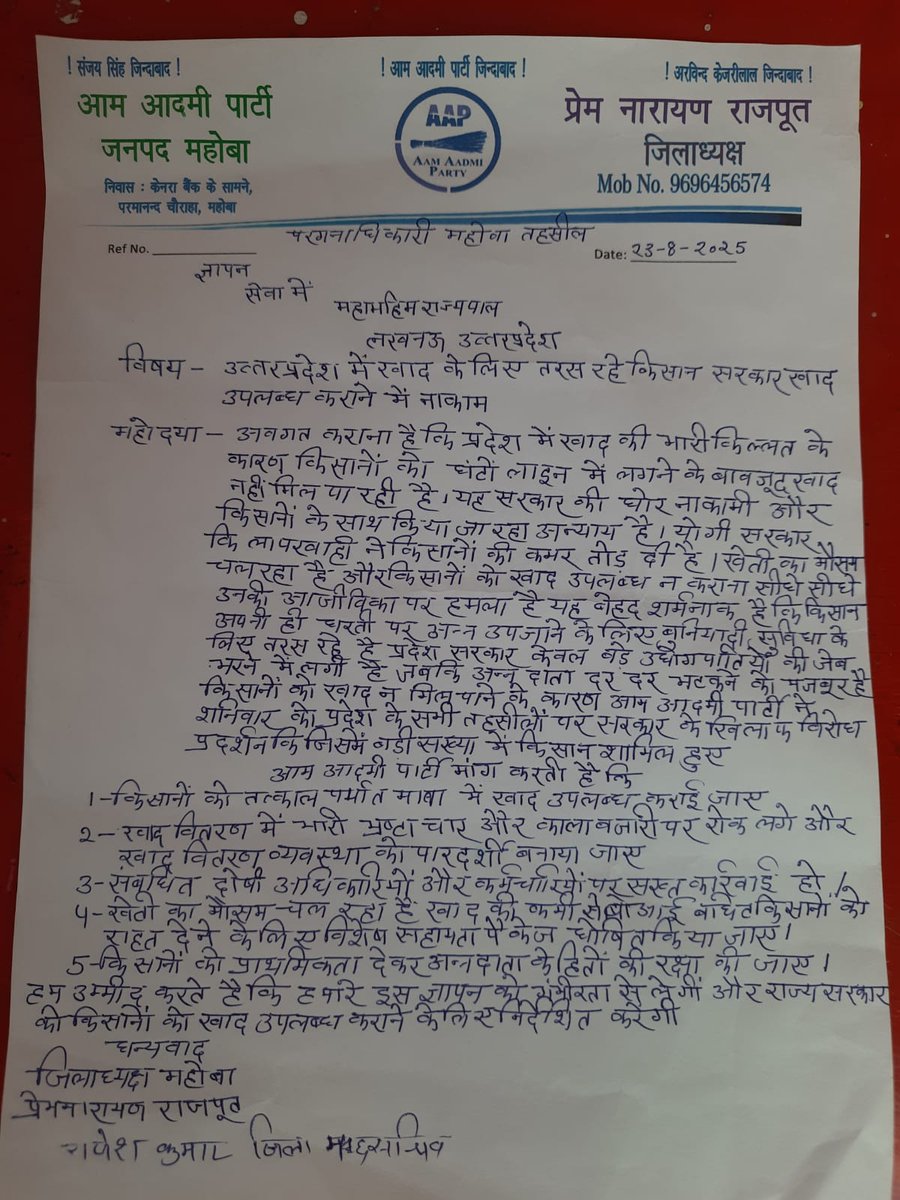 ! संजय सिंह जिन्दाबाद !
! आम आदमी पार्टी जिन्दाबाद !
! अरविन्द केजरीलाल जिन्दाबाद !
आम आदमी पार्टी
जनपद महोबा
निवास : केनरा बैंक के सामने,
परमानन्द चौराहा, महोबा
AAP
AAM AADMI
PARTY
प्रेम नारायण राजपूत
जिलाध्यक्ष
Mob No. 9696456574
परगनाधिकारी महोबा तहसील
Ref No.
Date: 23-8-2025
ज्ञापन
सेवा में
महामहिम राज्यपाल
लखनऊ उत्तरप्रदेश
विषय - उत्तरप्रदेश में खाद के लिए तरस रहे किसान सरकार खाद
उपलब्ध कराने में नाकाम
महोदया - अवगत कराना है कि प्रदेश में खाद की भारी किल्लत के
कारण किसानों को घंटों लाइन में लगने के बावजूद खाद
नहीं मिल पा रही है। यह सरकार की घोर नाकामी और
किसानों के साथ किया जा रहा अन्याय है। योगी सरकार
कि लापरवाही ने किसानों की कमर तोड़ दी है। खेती का मौसम
चल रहा है और किसानों को खाद उपलब्ध न कराना सीधे सीधे
उनकी आजीविका पर हमला है यह बेहद शर्मनाक है कि किसान
अपनी ही धरती पर अन्न उपजाने के लिए बुनियादी सुविधा के
लिए तरस रहे है प्रदेश सरकार केवल बड़े उद्योगपतियों की जेब
भरने में लगी है जबकि अन्न दाता दर दर भटकने को मजबूर है
किसानों को खाद न मिल पाने के कारण आम आदमी पार्टी ने
शनिवार को प्रदेश के सभी तहसीलों पर सरकार के खिलाफ विरोध
प्रदर्शन कि जिसमें बड़ी संख्या में किसान शामिल हुए
आम आदमी पार्टी मांग करती है कि
1- किसानों को तत्काल पर्याप्त मात्रा में खाद उपलब्ध कराई जाए
2- खाद वितरण में भारी भ्रष्टाचार और कालाबजारी पर रोक लगे और
खाद वितरण व्यवस्था को पारदर्शी बनाया जाए
3- संबंधित दोषी अधिकारियों और कर्मचारियों पर सख्त कार्रवाई हो।
4- खेती का मौसम चल रहा है खाद की कमी से बोआई बंचित किसानों को
राहत देने के लिए विशेष सहायता पैकेज घोषित किया जाए।
5- किसानों को प्राथमिकता देकर अन्नदाता के हितों की रक्षा की जाए।
हम उम्मीद करते है कि हमारे इस ज्ञापन को गंभीरता से लेगीं और राज्य सरकार
को किसानों को खाद उपलब्ध कराने के लिए निर्देशित करेंगी
धन्यवाद
जिलाध्यक्ष महोबा
प्रेमनारायण राजपूत
गणेश कुमार जिला